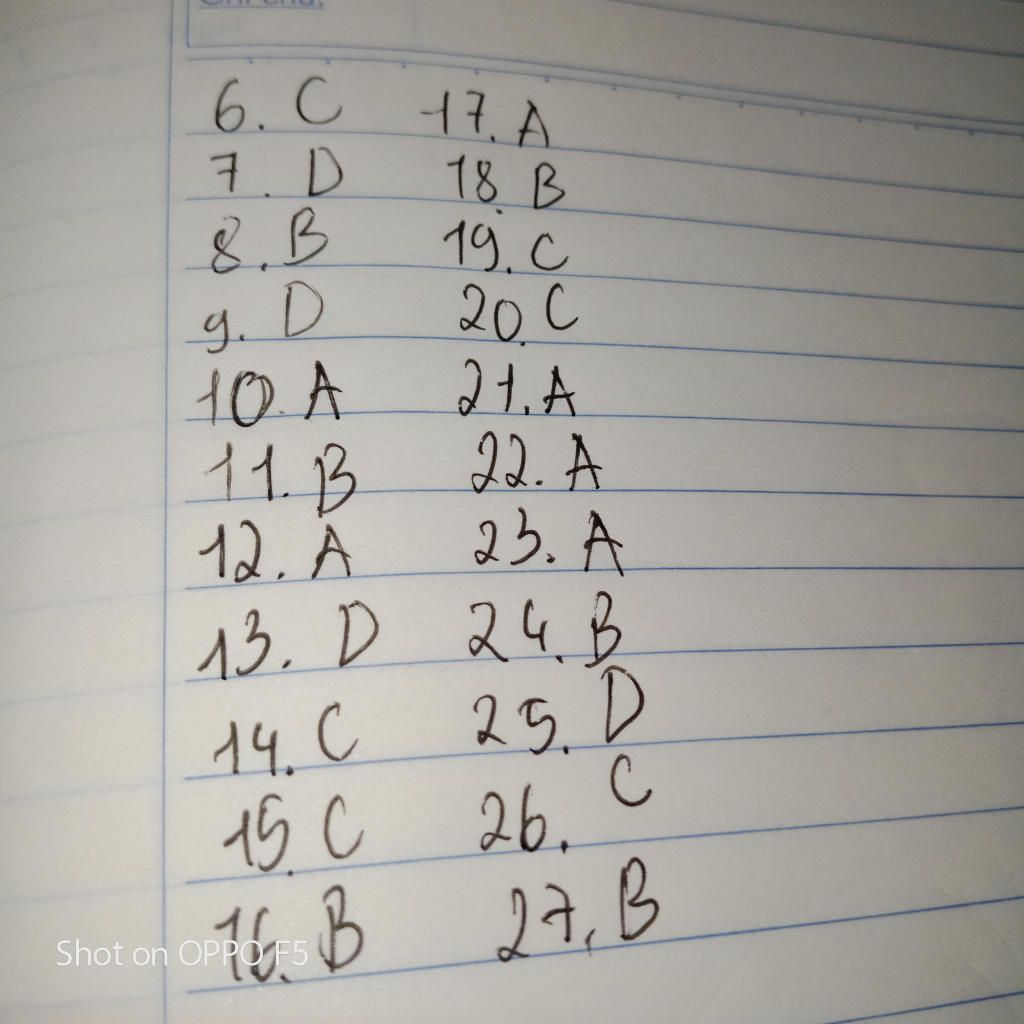 6. C
7. D
8. B
9. D
10. A
11. B
12. A
13. D
14. C
15. C
16. B
17. A
18. B
19. C
20. C
21. A
22. A
23. A
24. B
25. D
26. C
27. B
Shot on OPPO F5